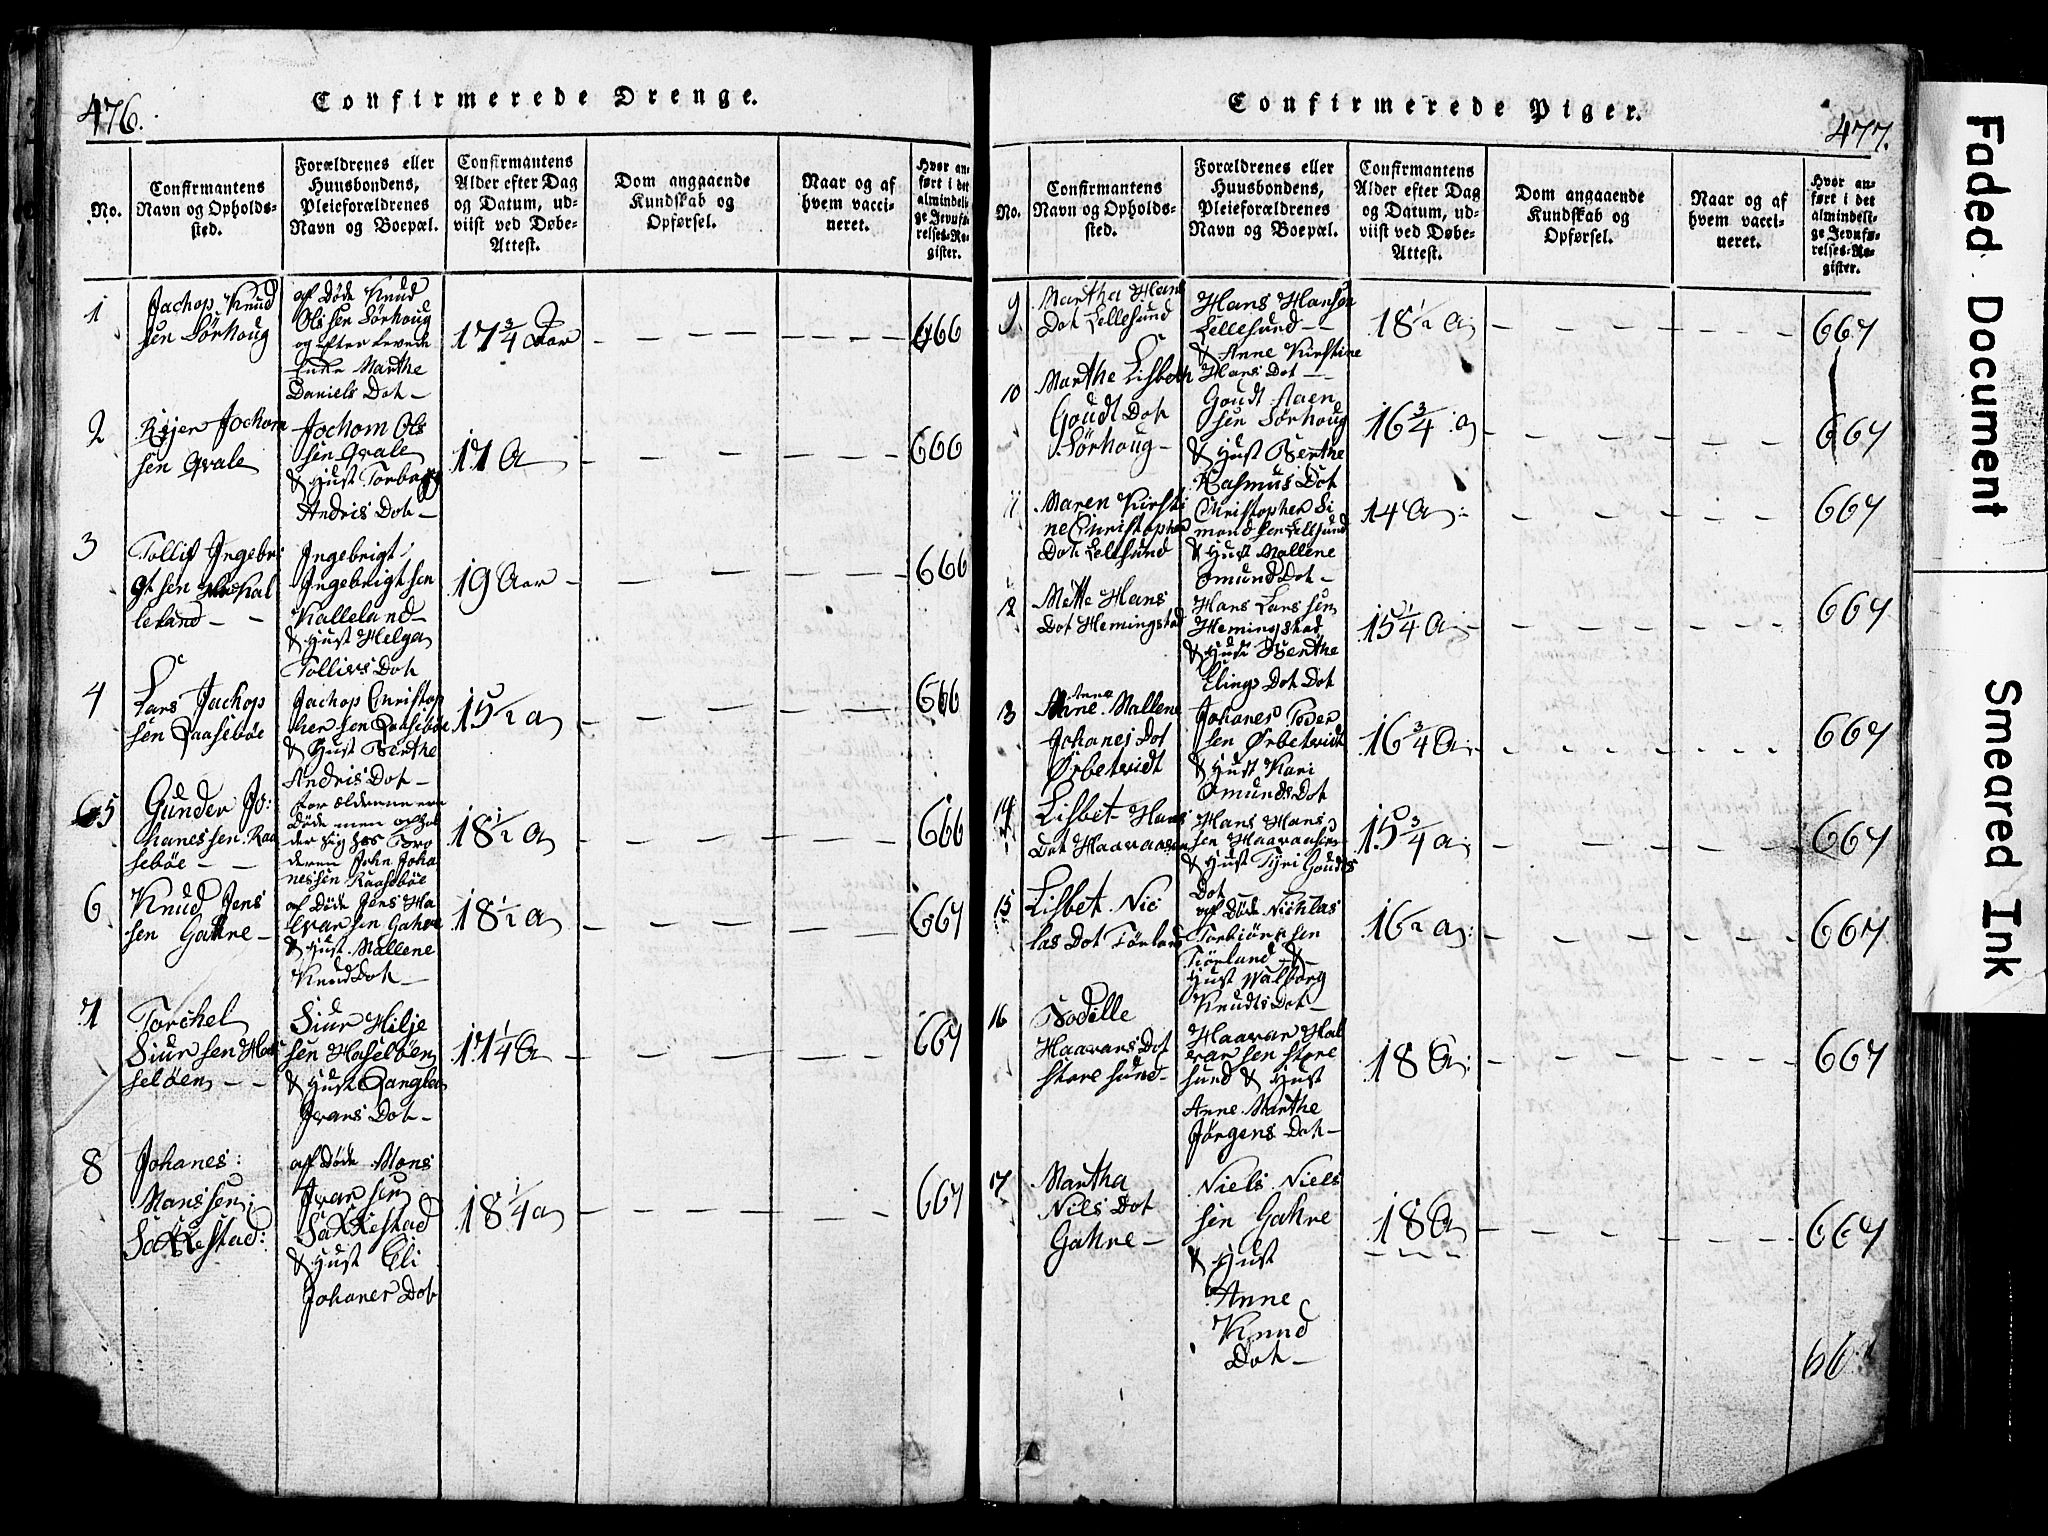 476.
Confirmerede Drenge.
No.
Confirmantens
Navn og Opholds-
sted.
Forældrenes eller
Huusbondens,
Pleieforældrenes
Navn og Boepæl.
Confirmantens
Alder efter Dag
og Datum, ud-
viist ved Døbe-
Attest.
Dom angaaende
Kundskab og
Opførsel.
Naar og af
hvem vacci-
neret.
Hvor an-
ført i det
almindeli-
ge Jevnfø-
relses-Re-
gister.
1
Jachop Knud
sen Sörhoug
af Døde Knud
Olssen Sörhoug
og efter Levende
Enke Marthe
Daniels Dot —
17 3/4 Aar
666
2
Rejer Jochom
sen Qvale
Jochom Ols
sen Qvale
& Hust Torborg
Andris Dot —
17 A
666
3
Tollif Ingebri
gtsen Kal
leland — —
Ingebrigt
Ingebrigtsen
Kalleland —
& Hust Helga
Tollivs Dot
19 Aar —
666
4
Lars Jachop
sen Raasebøe
Jachop Christop
hersen Raasebøe
& Hust Berthe
Andris Dot —
15 1/2 a
666
5
Gunder Jo:
hanessen Raa
sebøe — —
Forældrene ere
Døde men ophol
der sig hos Bro
deren John Joha
nessen Raasebøe
18 1/2 a
666
6
Knud Jens
sen Gahre —
af Døde Jens Ha
lvarsen Gahre
& Hust Mallene
Knud Dot —
18 1/2 a
667
7
Torchel
Siursen Ha
seløen — —
Siur Hilje
sen Haseløen
& Hust Rangla
Ivars Dot —
17 1/4 A
667
8
Johanes:
Monssen
Sakkestad:
af Døde Mons
Ivarsen
Sakkestad
& Hust Eli
Johanes Dot
18 1/4 a
667
Confirmerede Piger.
477.
No.
Confirmantens
Navn og Opholds-
sted.
Forældrenes eller
Huusbondens,
Pleieforældrenes
Navn og Boepæl.
Confirmantens
Alder efter Dag
og Datum, ud-
viist ved Døbe-
Attest.
Dom angaaende
Kundskab og
Opførsel.
Naar og af
hvem vacci-
neret.
Hvor an-
ført i det
almindeli-
ge Jevnfø-
relses-Re-
gister.
9
Martha Hans
Dot Lellesund
Hans Hansen
Lellesund — —
& Anne Kirstine
Hans Dot —
18 1/2 a
667
10
Marthe Lisbeth
Goudt Dot
Sörhoug —
Goudt Aaen
sen Sörhoug
& Hust Berthe
Rasmus Dot
16 3/4 a
667
11
Maren Kirsti
ne Christopher
Dot Lellsund
Christopher Si
mondsen Lellsund
& Hust Mallene
Omund Dot —
14 a
667
12
Mette Hans
Dot Hemingstad
Hans Larssen
Hemingstad
& Hust Berthe
Elings Dot Dot
15 1/4 a
667
13
Anne
Mallene
Johanes Dot
Ørbetvidt
Johanes Peder
sen Ørbetvidt
& Hust Kari
Omunds Dot
16 3/4 a
667
14
Lisbet Hans
Dot Haavaasen
Hans Hans
sen Haavaasen
& Hust Tyri Goudts
Dot
15 3/4 a
667
15
Lisbet Nic
las Dot Förland
af Døde Nichlas
Torbiörnsen
Förland &
Hust Walborg
Knudts Dot —
16 1/2 a
667
16
Bodille
Haavars Dot
Store sund —
Haavar Hal
varsen Store
sund & Hust
Anne Marthe
Jörgens Dot —
18 a
667
17
Martha
Nils Dot
Gahre —
Niels Niels
sen Gahre
& Hust
Anne
Knud
Dot —
18 A
667
Faded Document
Smeared Ink